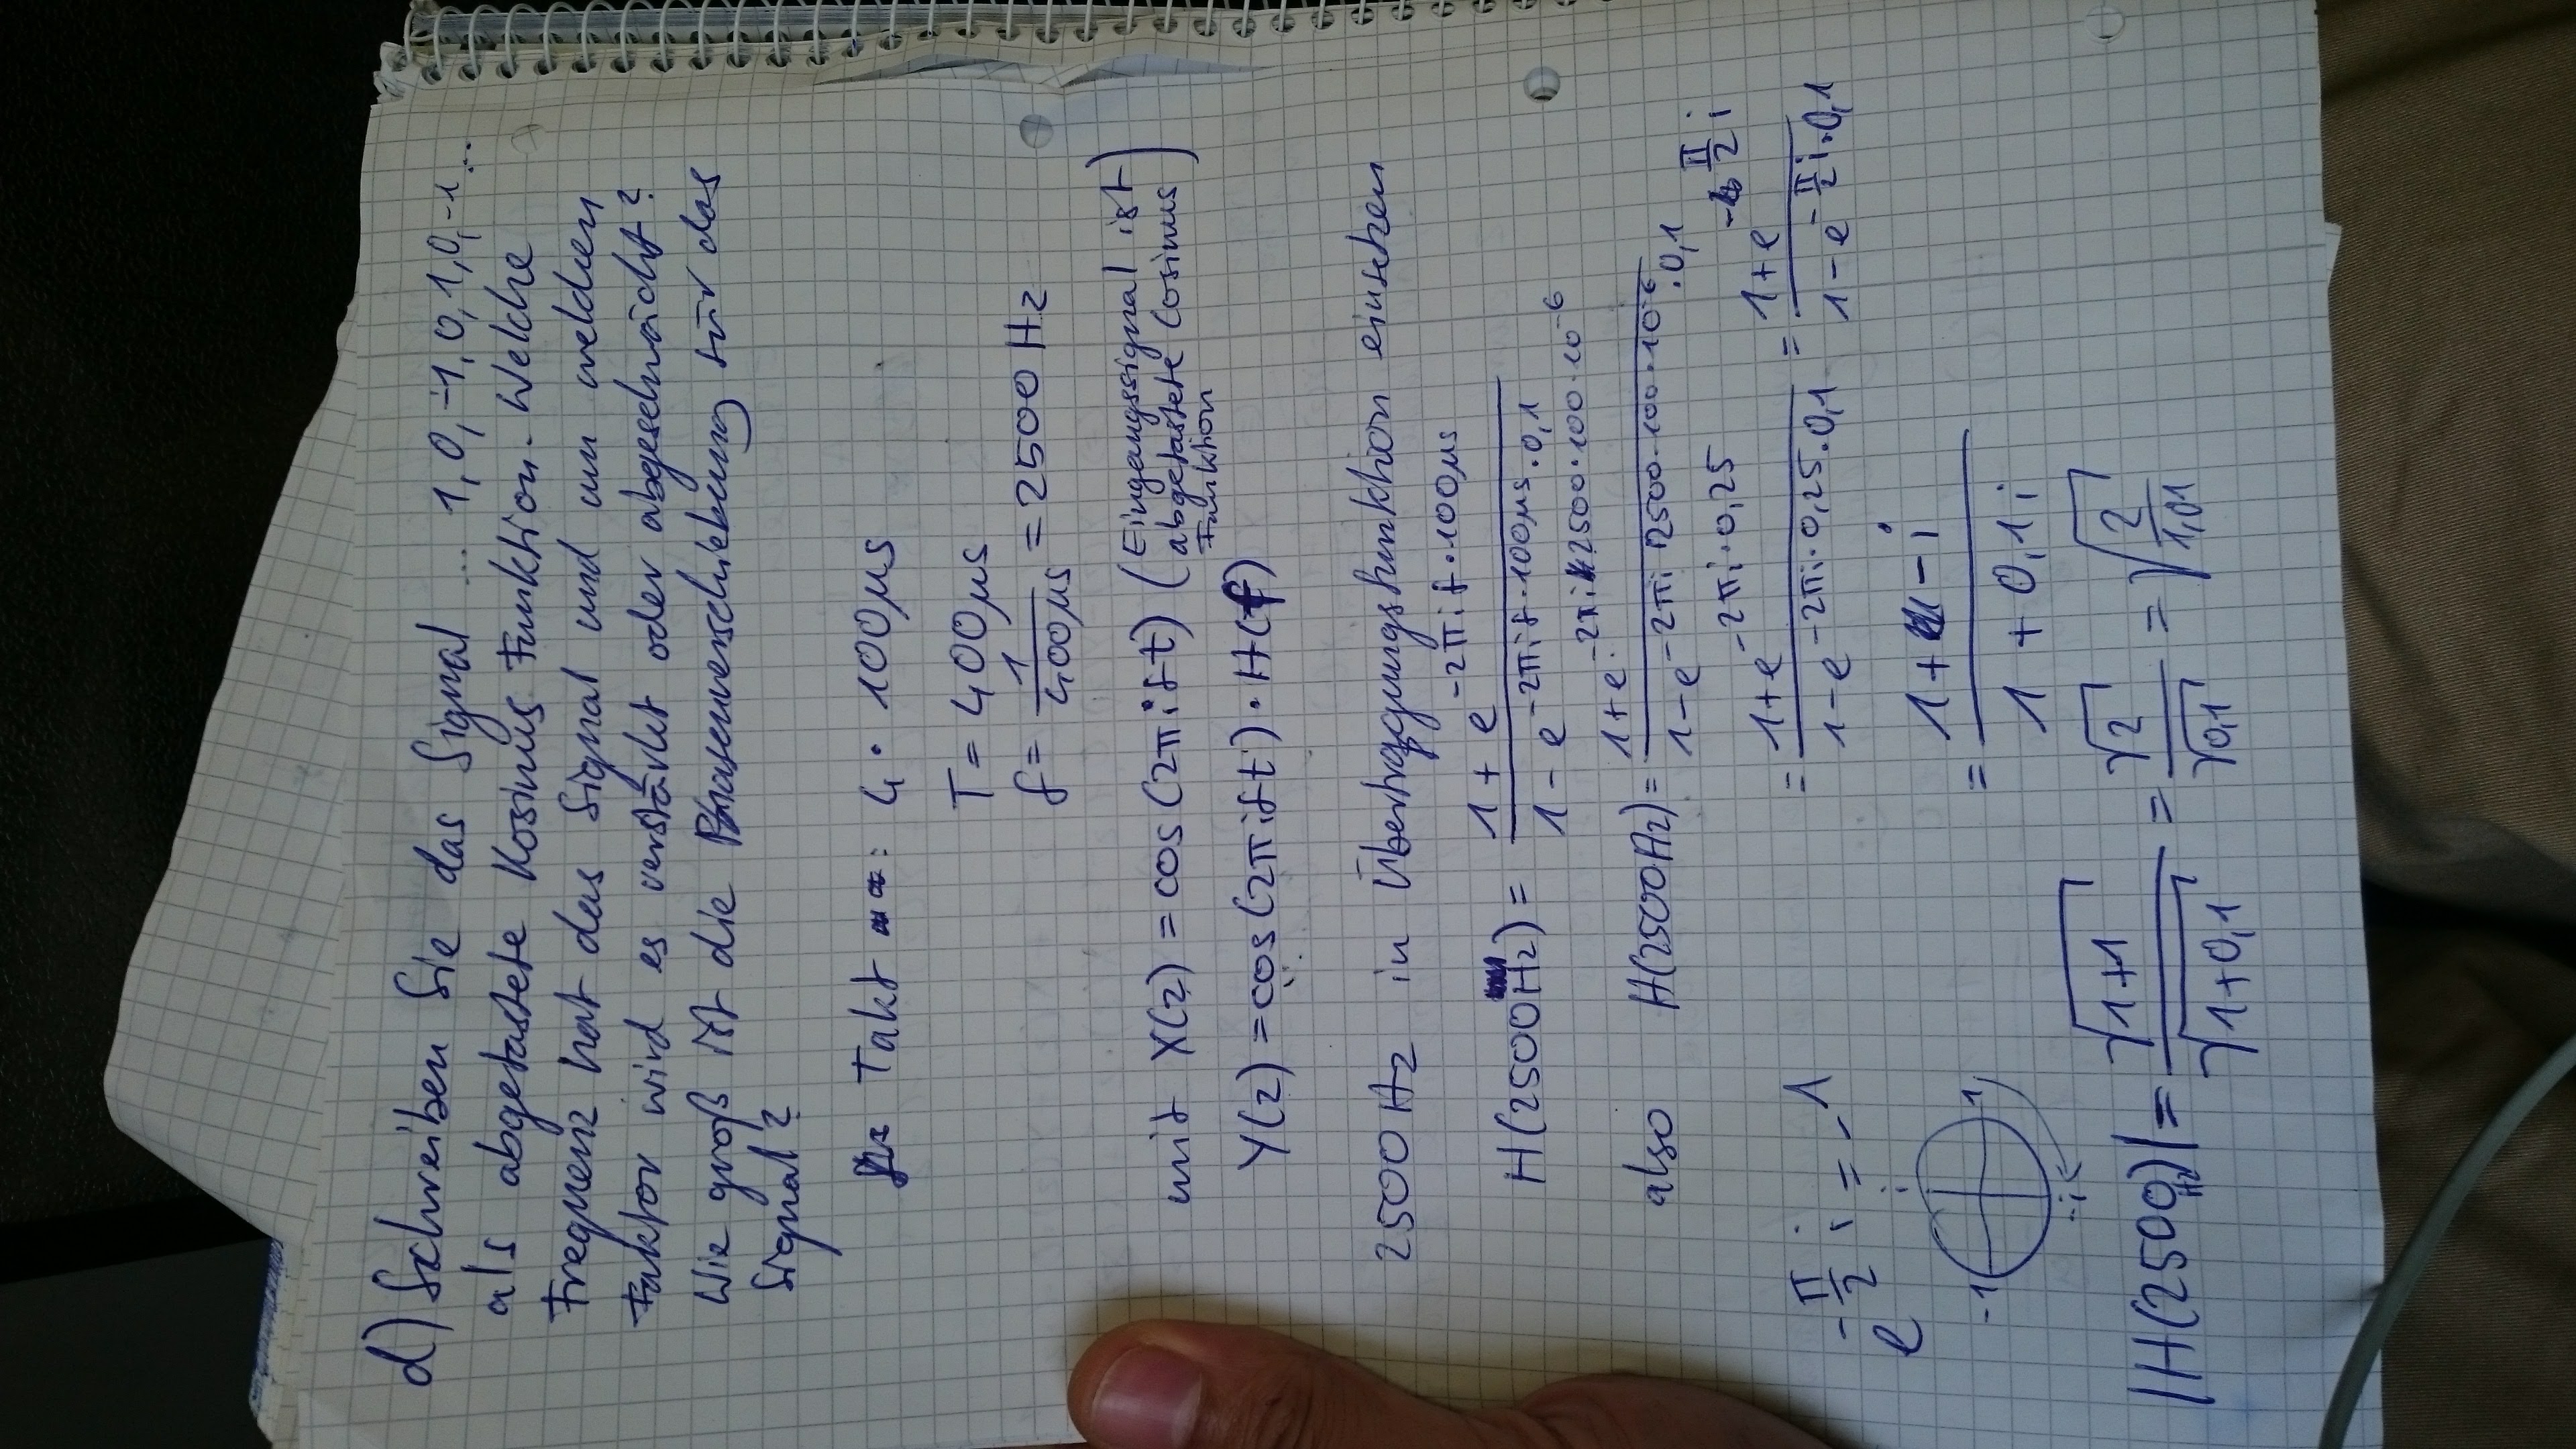 d) Schreiben Sie das Signal ... 1, 0, -1, 0, 1, 0, -1 ...
als abgetastete Kosinus Funktion. Welche
Frequenz hat das Signal und um welchen
Faktor wird es verstärkt oder abgeschwächt?
Wie groß ist die Phasenverschiebung für das
Signal?
Takt : 4 · 100µs
T = 400µs
f = 1/400µs = 2500 Hz
mit X(z) = cos(2πift) (Eingangssignal ist abgetastete Cosinus Funktion)
Y(z) = cos(2πift) · H(f)
2500 Hz in Übertragungsfunktion einsetzen
H(2500Hz) = 1 + e^-2πif·100µs / 1 - e^-2πif·100µs · 0,1
also H(2500Hz) = 1+e^-2πi·2500·100·10^-6 / 1-e^-2πi·2500·100·10^-6 · 0,1
= 1+e^-2πi·0,25 / 1-e^-2πi·0,25 · 0,1 = 1+e^-π/2 i / 1-e^-π/2 i · 0,1
e^-π/2 i = -1
i
-1 1
-i
= 1 + -i / 1 + 0,1i
|H(2500Hz)| = √1+1 / √1+0,1 = √2 / √0,1 = √2/1,01